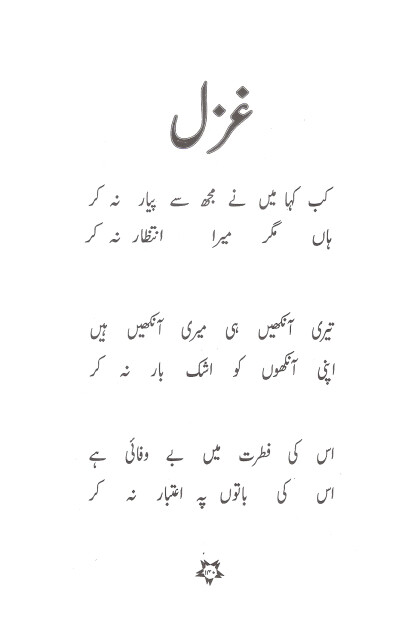 غزل
کب کہا میں نے مجھ سے پیار نہ کر
ہاں مگر میرا انتظار نہ کر
تیری آنکھیں ہی میری آنکھیں ہیں
اپنی آنکھوں کو اشک بار نہ کر
اس کی فطرت میں بے وفائی ہے
اس کی باتوں پہ اعتبار نہ کر
۱۳۰